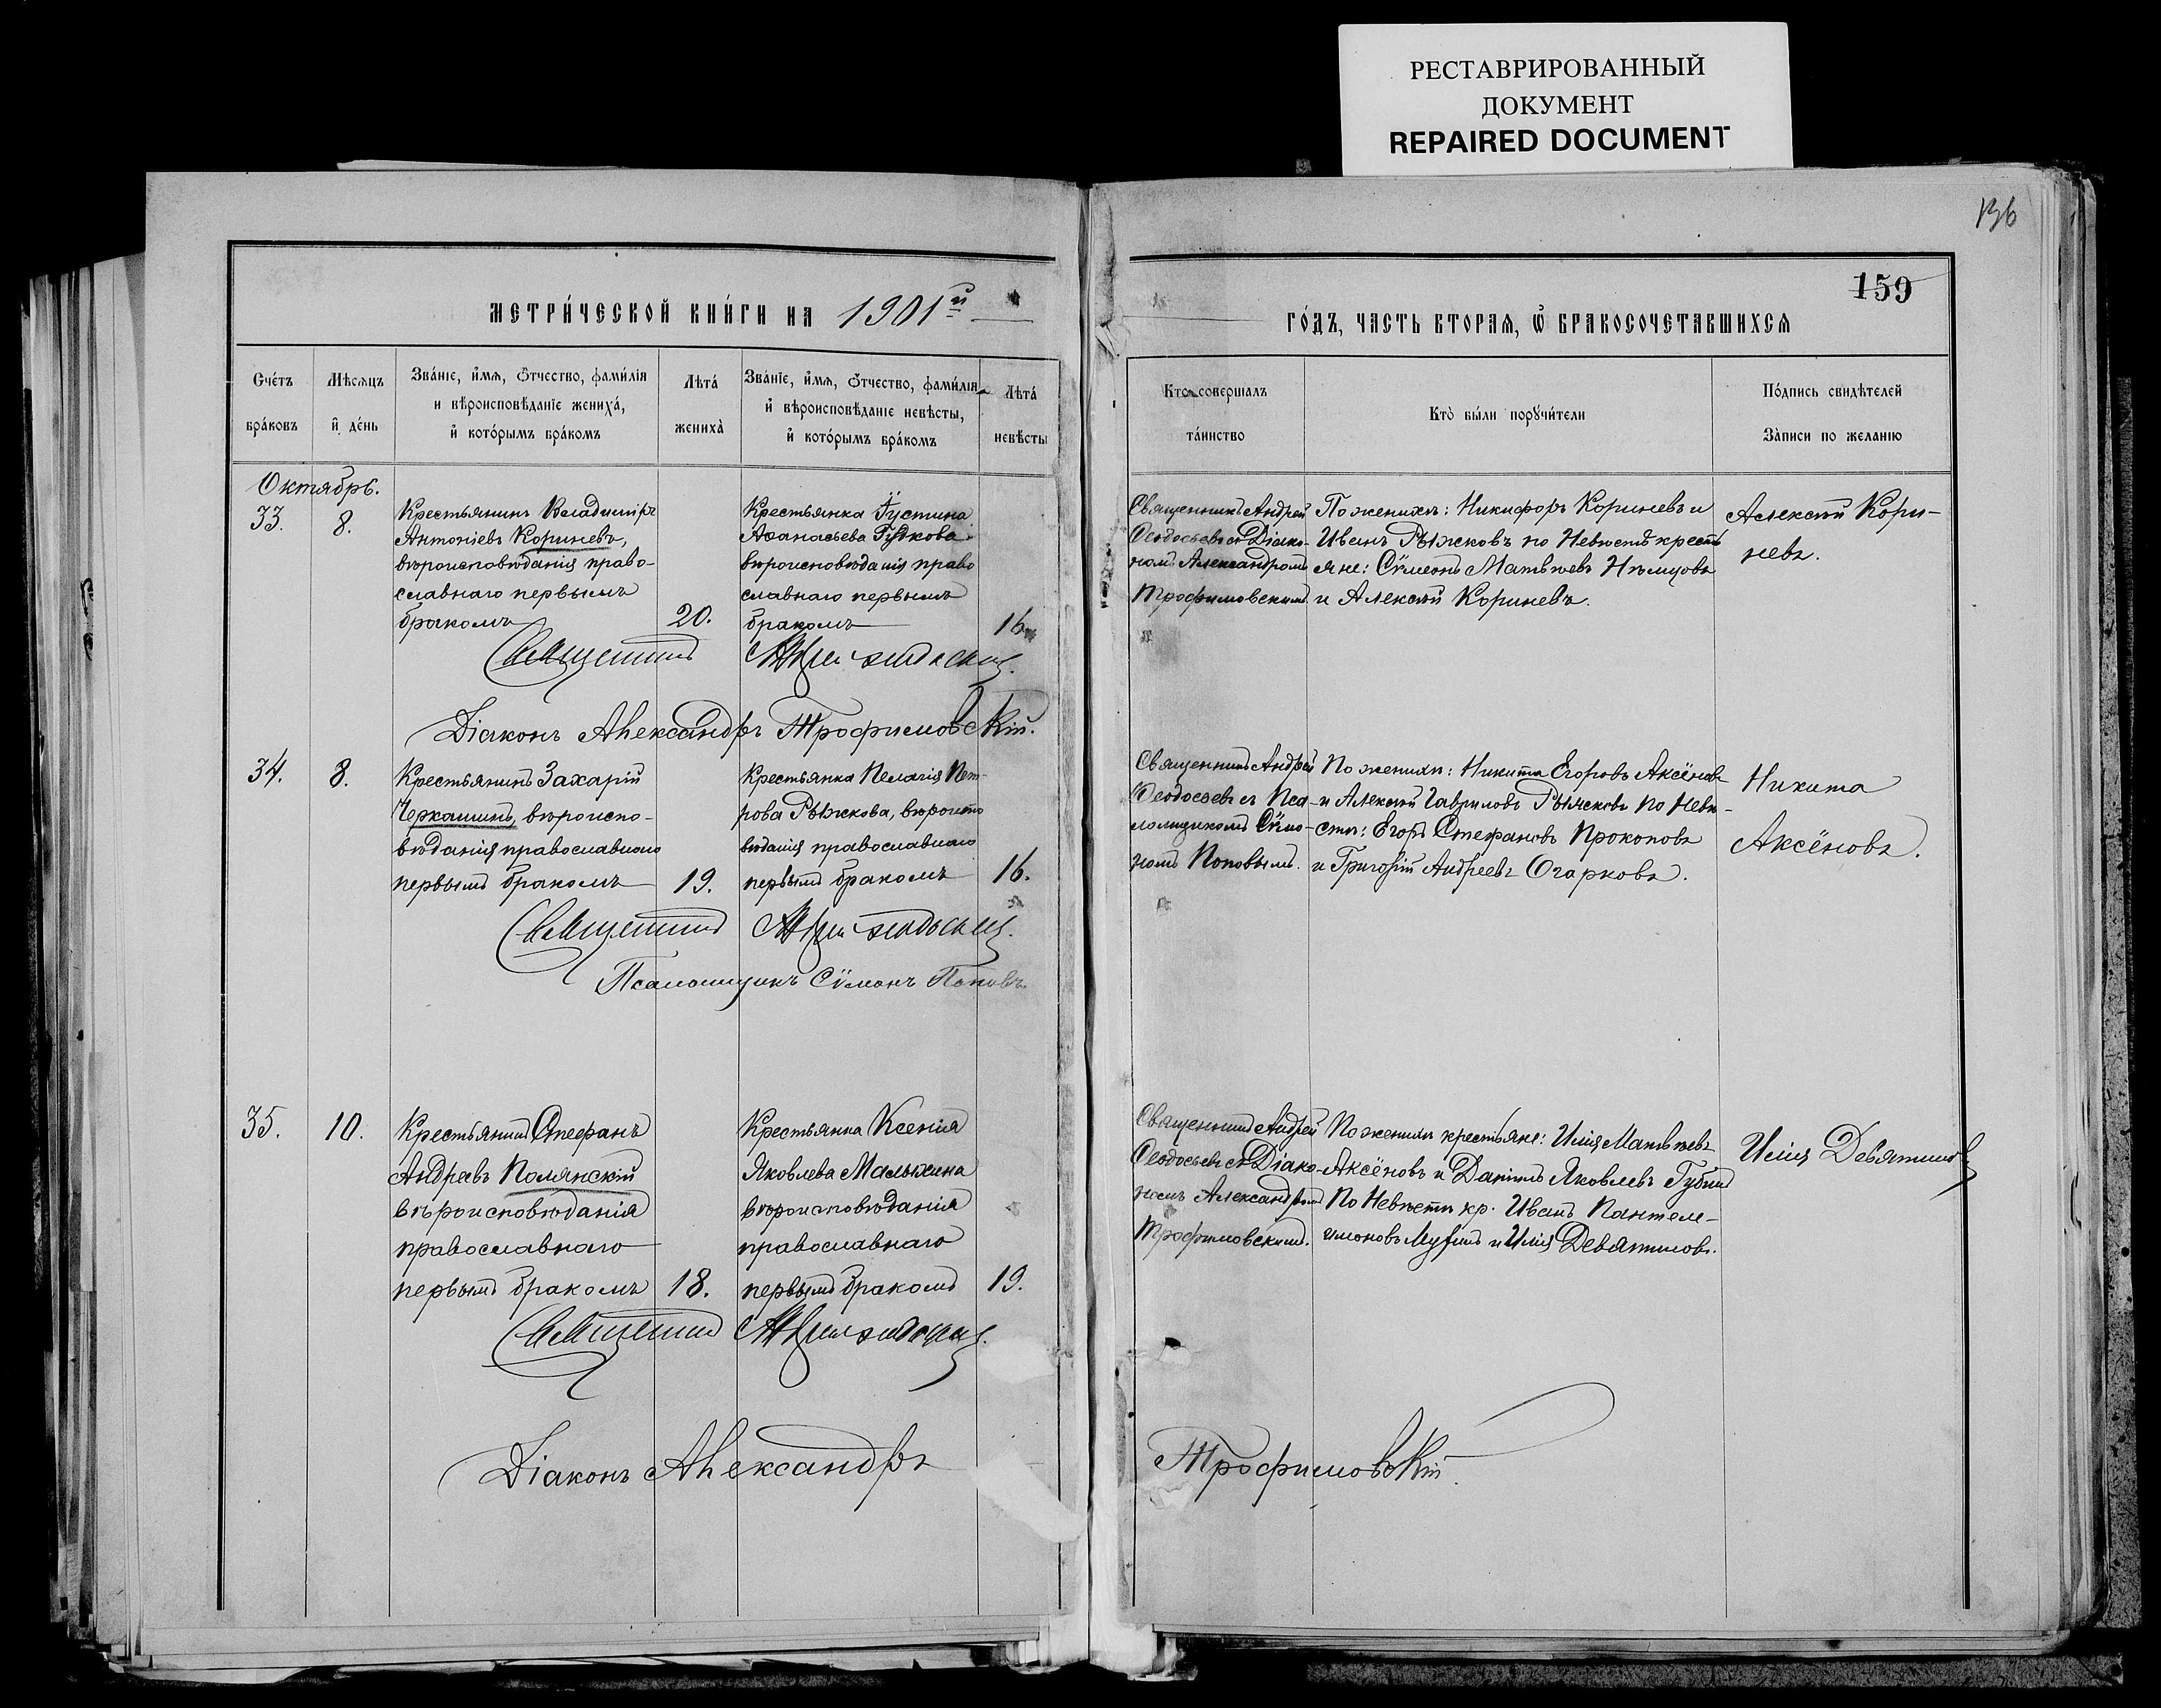 РЕСТАВРИРОВАННЫЙ
ДОКУМЕНТ
REPAIRED DOCUMENT
136
159
МЕТРИ́ЧЕСКОЙ КНИ́ГИ НА 1901й
ГО́ДЪ, ЧАСТЬ ВТОРАѦ, Ѡ БРАКОСОЧЕТАВШИХСѦ
Счétъ бра́ковъ
Мѣсѧцъ и҆ де́нь
Зва́нїе, и҆́мѧ, ѻ҆́тчество, фами́лїѧ
и вѣроисповѣ́данїе жениха̀,
и҆ кото́рымъ бра́комъ
Лѣта̀ жениха̀
Зва́нїе, и҆́мѧ, ѻ҆́тчество, фами́лїѧ
и҆ вѣроисповѣ́данїе невѣ́сты,
и҆ кото́рымъ бра́комъ
Лѣта̀ невѣ́сты
Кто̀ совершалъ
та́инство
Кто̀ бы́ли порꙋчи́тели
По́дпись свидѣ́телей
За́писи по жела́нїю
Октябрь.
33.
8.
Крестьянинъ Владимiръ
Антонiевъ Кориневъ,
вѣроисповѣданiя право-
славнаго первымъ
бракомъ
20.
Крестьянка Iустина
Аѳанасьева Гудкова
вѣроисповѣданiя право
славнаго первымъ
бракомъ
16.
Священникъ Андрей
Ѳеодосьевъ съ Дiако-
номъ Александромъ
Трофимовскимъ.
По женихѣ: Никифоръ Кориневъ и
Иванъ Рыжковъ по Невѣстѣ кресть
яне: Сѵмеонъ Матвѣевъ Нѣмцовъ
и Алексѣй Кориневъ.
Алексѣй Кори-
невъ.
Священникъ Андрей Ѳеодосьевъ.
Дiаконъ Александръ Трофимовскiй.
34.
8.
Крестьянинъ Захарiй
Черкашинъ, вѣроиспо-
вѣданiя православнаго
первымъ бракомъ
19.
Крестьянка Пелагiя Пет-
рова Рыжкова, вѣроиспо
вѣданiя православнаго
первымъ бракомъ
16.
Священникъ Андрей
Ѳеодосьевъ съ Пса-
ломщикомъ Сѵмо-
номъ Поповымъ.
По женихѣ: Никита Егоровъ Аксёновъ
и Алексѣй Гавриловъ Рыжковъ по Невѣ-
стѣ: Егоръ Стефановъ Прокоповъ
и Григорiй Андреевъ Огарковъ.
Никита
Аксёновъ.
Священникъ Андрей Ѳеодосьевъ.
Псаломщикъ Сѵмонъ Поповъ
35.
10.
Крестьянинъ Стефанъ
Андреевъ Полянскiй
вѣроисповѣданiя
православнаго
первымъ бракомъ
18.
Крестьянка Ксенiя
Яковлева Малыхина
вѣроисповѣданiя
православнаго
первымъ бракомъ
19.
Священникъ Андрей
Ѳеодосьевъ съ Дiако-
номъ Александромъ
Трофимовскимъ.
По женихѣ крестьяне: Илiя Матвѣевъ
Аксёновъ и Данiилъ Яковлевъ Губинъ
По Невѣстѣ кр. Иванъ Пантеле-
имоновъ и Илiя Девятиловъ.
Илiя Девятиловъ
Священникъ Андрей Ѳеодосьевъ.
Дiаконъ Александръ Трофимовскiй.